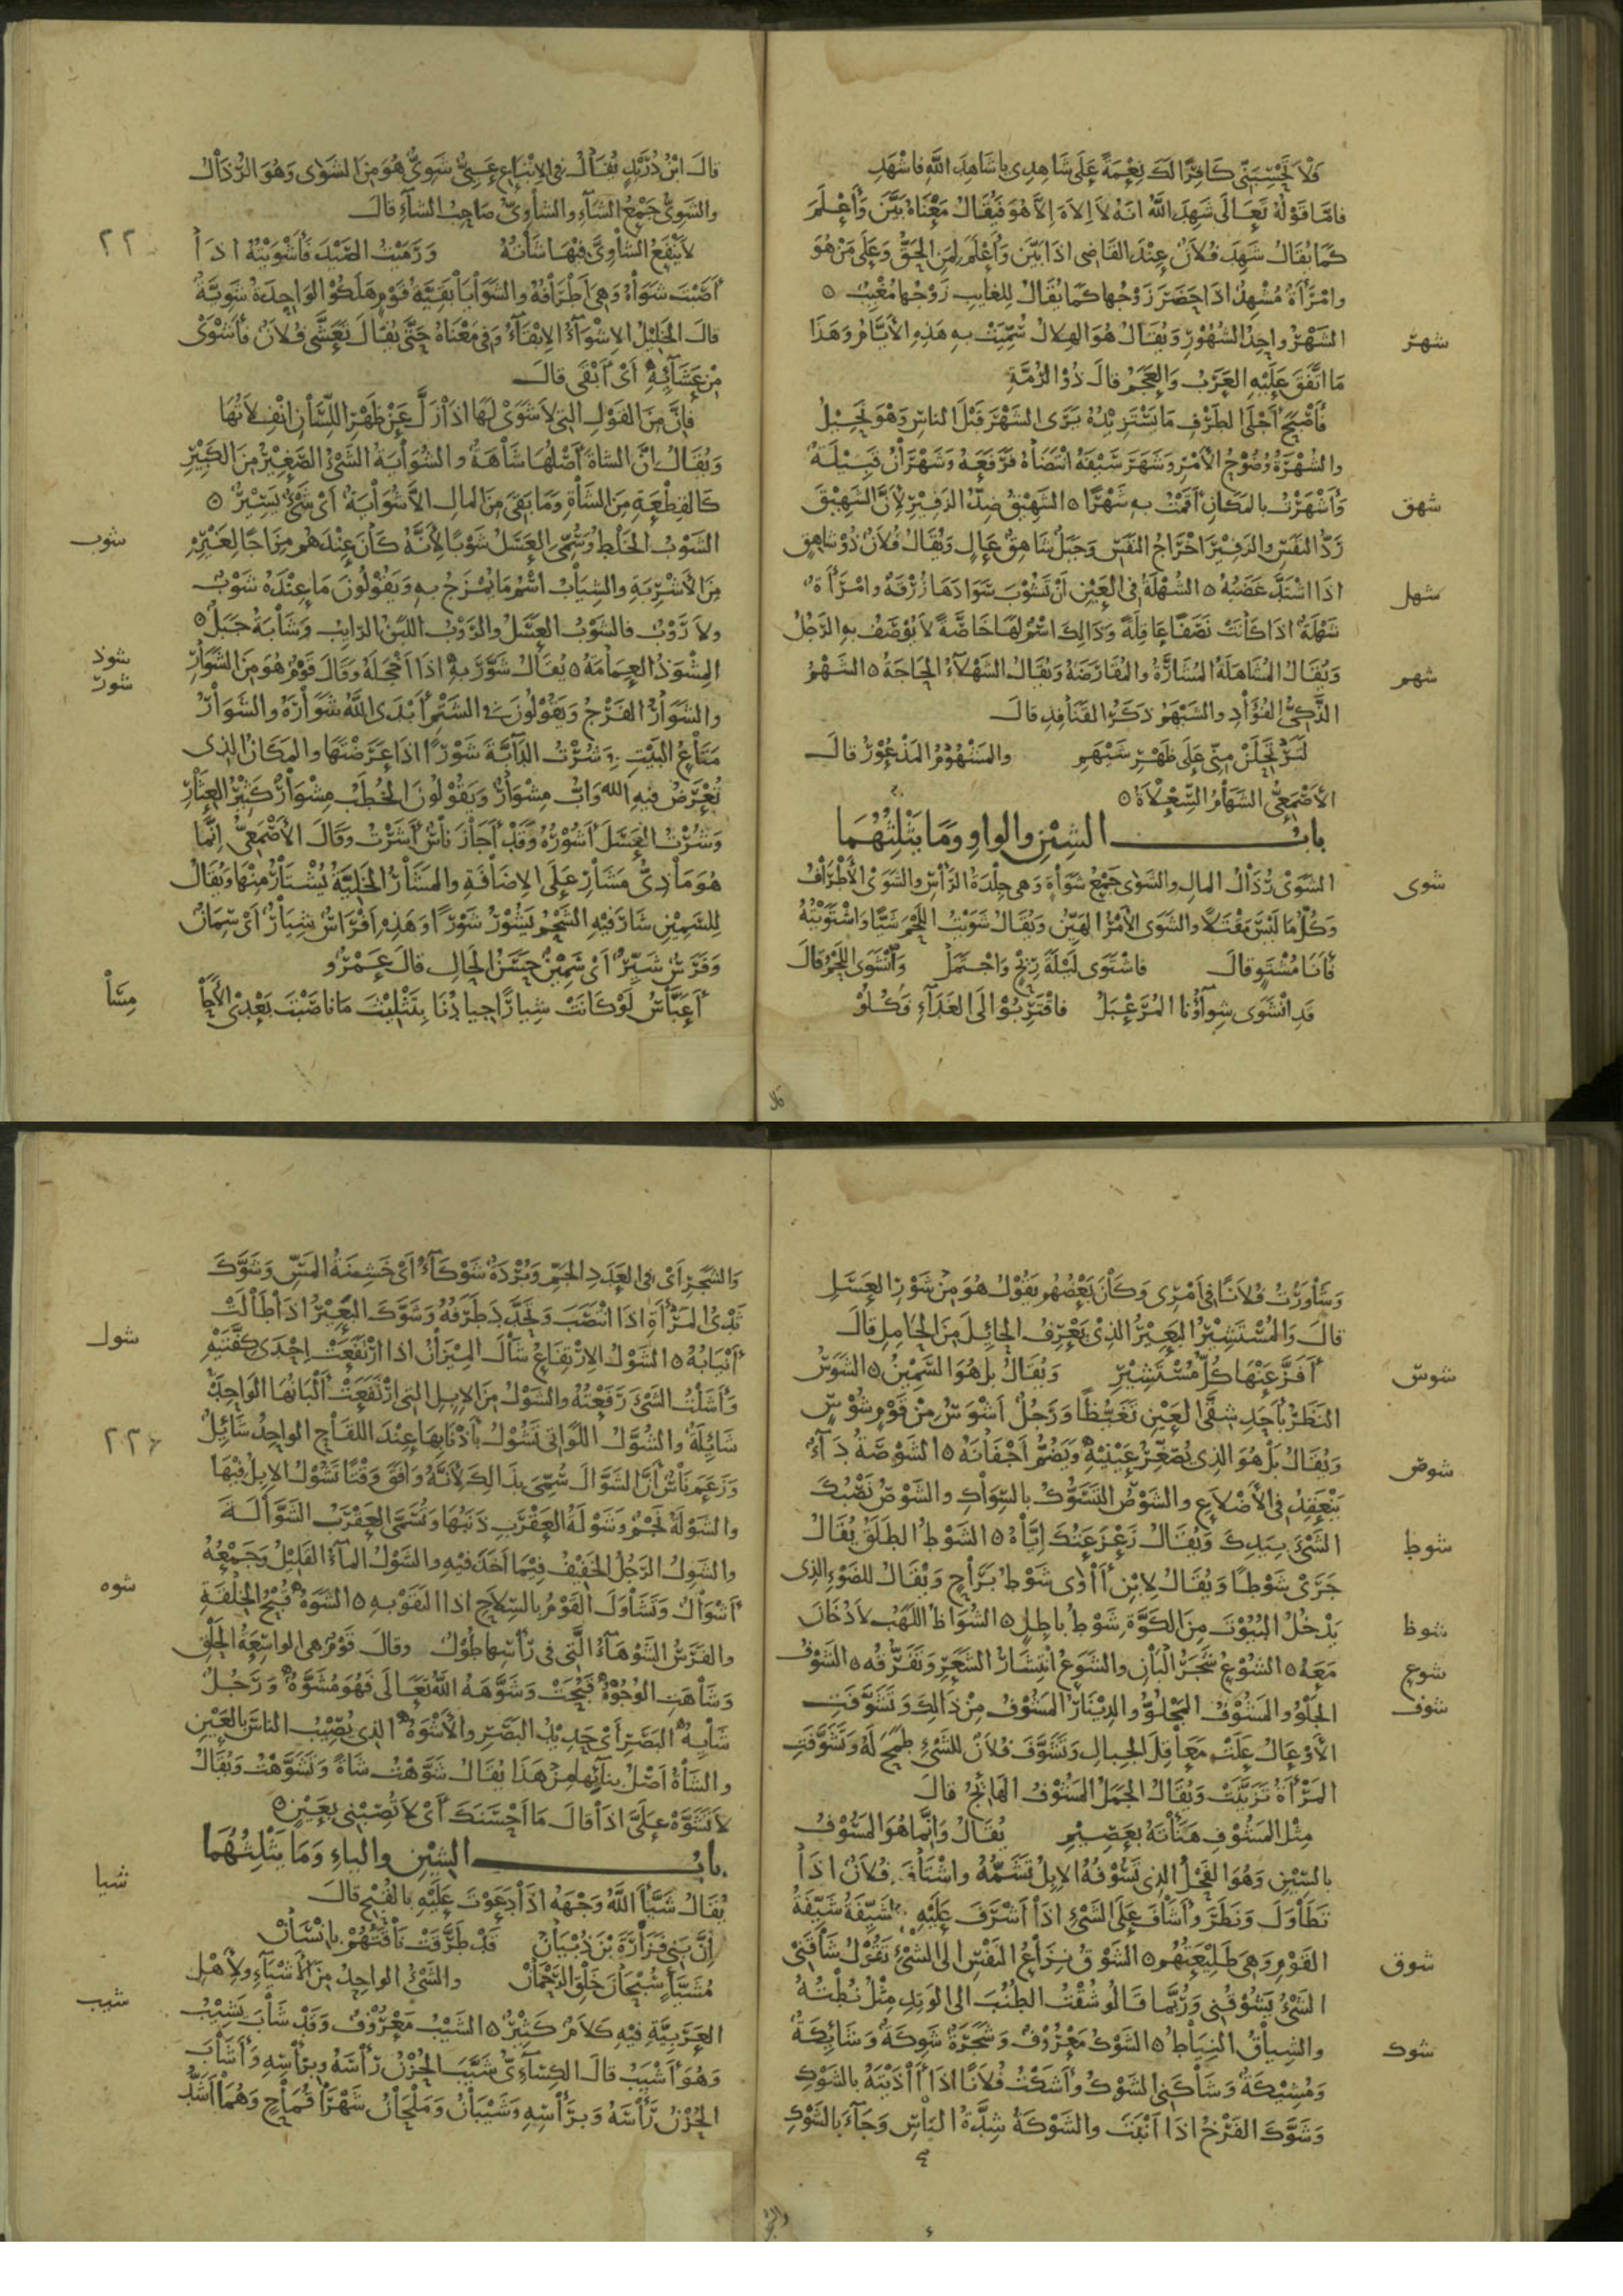 فَلَا تَحْسِبَنِّى كَافِرًا لَكَ نِعْمَةً عَلَى شَاهِدِى يا شَاهِدَ اللَّهِ فاشْهَدِ
فامّا قَوْلُهُ تَعَالَى شَهِدَ اللَّهُ انّهُ لَا اِلَاهَ اِلَّا هُوَ فَيُقَالُ مَعْنَاهُ بَيَّنَ وَأَعْلَمَ
كَمَا يُقَالُ شَهِدَ فُلَانٌ عِنْدَ القَاضِى اذَا بَيَّنَ وَأَعْلَمَ لِمَنِ الحَقُّ وَعَلَى مَنْ هُوَ
وامْرَأَةٌ مُشْهِدٌ اذَا حَضَرَ زَوْجُها كَمَا يُقَالُ لِلْغَايِبِ زَوْجُها مُغِيْبٌ ٥
شهر
الشَهْرُ واحِدُ الشُهُوْرِ وَيُقَالُ هُوَ الهِلَالُ سُمِّيَتْ بِهِ هَذِهِ الأَيَّامُ وَهَذَا
مَا اتَّفَقَ عَلَيْهِ العَرَبُ وَالعَجَمُ قالَ ذُوْ الرُمَّةِ
فَأَصْبَحَ أَجْلَى الطَرْفِ مَا يَسْتَزِيْدُهُ يَرَى الشَهْرَ قَبْلَ الناسِ وَهْوَ نَحِيْلُ
والشُهْرَةُ وُضُوْحُ الأَمْرِ وَشَهَرَ سَيْفَهُ انْتَضَاهُ فَرَفَعَهُ وَشَهْرَانُ قَبِيْلَةٌ
شهق
وَأَشْهَرْتُ بالمَكَانِ أَقَمْتُ بِهِ شَهْرًا ٥ الشَهِيْقُ ضِدُّ الزَفِيْرِ لِأَنَّ الشَهِيْقَ
رَدُّ النَفَسِ والزَفِيْرَ اخْرَاجُ النَفَسِ وَجَبَلٌ شَاهِقٌ عَالٍ وَيُقَالُ فُلَانٌ ذُوْ شاهِقٍ
شهل
اذَا اشْتَدَّ غَضَبُهُ ٥ الشُهْلَةُ فى العَيْنِ أَنْ تَشُوْبَ سَوَادَهَا زُرْقَةٌ وامْرَأَةٌ
شَهْلَةٌ اذَا كَانَتْ نَصَفًا عَاقِلَةً وَذَالِكَ اسْمٌ لَهَا خَاصَّةً لَا يُوْصَفُ بِهِ الرَجُلُ
شهم
وَيُقَالُ المُشَاهَلَةُ المُشَارَّةُ والمُقَارَضَةُ وَيُقَالُ الشَهْلَآءُ الحَاجَةُ ٥ الشَهْمُ
الذَكِىُّ الفُؤَادِ والشَيْهَمُ ذَكَرُ القَنَافِذِ قالَ
لَتَرْتَحِلَنْ مِنِّى عَلَى ظَهْرِ شَيْهَمِ والمَشْهُوْمُ المَذْعُوْرُ قالَ
الأَصْمَعِىُّ الشَهَامُ السِعْلَاةُ ٥
بابُ الشِيْنِ والواوِ وَمَا يَثْلِثُهُمَا
شوى
الشَوَى رُذَالُ المالِ والشَوَى جَمْعُ شَوَاةٍ وَهى جِلْدَةُ الرَأْسِ والشَوَى الأَطْرَافُ
وَكُلُّ مَا لَيْسَ مَقْتَلًا والشَوَى الأَمْرُ الهَيِّنُ وَيُقَالُ شَوَيْتُ اللَحْمَ شَيًّا وَاشْتَوَيْتُهُ
فَأَنَا مُشْتَوٍ قالَ فاشْتَوَى لَيْلَةَ رِيْحٍ وَاجْتَمَلْ وَانْشَوَى اللَحْمُ قالَ
قَدِ انْشَوَى شِوَآؤُنا المُرَعْبَلُ فاقْتَرِبُوْا الَى الغَدَآءِ فَكُلُوْ
قال
قالَ ابْنُ دُرَيْدٍ يُقَالُ فى الاِتْبَاعِ عَيِىٌّ شَوِىٌّ هُوَ مِنَ الشَوَى وَهُوَ الرُذَالُ
والشَوِىُّ جَمْعُ الشَآءِ والشَاوِىُّ صَاحِبُ الشآءِ قالَ
لَا يَنْفَعُ الشَاوِىَّ فِيْهَا شَاتُهُ وَرَمَيْتُ الصَيْدَ فَأَشْوَيْتُهُ اذَا
أَصَبْتَ شَوَاهُ وَهِىَ أَطْرَافُهُ والشَوَايَا بَقِيَّةُ قَوْمٍ هَلَكُوْا الوَاحِدَةُ شَوِيَّةٌ
قالَ الخَلِيْلُ الاِشْوَآءُ الاِبْقَآءُ وَفى مَعْنَاهُ حَتَّى يُقَالَ تَعَشَّى فُلَانٌ فَأَشْوَى
مِنْ عَشَآئِهِ أَىْ أَبْقَى قالَ
فَإِنَّ مِنَ القَوْلِ التِى لَا شَوَى لَهَا اذَا زَلَّ عَنْ ظَهْرِ اللِسَانِ انْفِلَاتُهَا
وَيُقَالُ انَّ الشاةَ أَصْلُهَا شَاهَةٌ والشُوَايَةُ الشَىْءُ الصَغِيْرُ مِنَ الكَبِيْرِ
كَالقِطْعَةِ مِنَ الشَاةِ وَمَا بَقِىَ مِنَ المالِ الاَّ شُوَايَةٌ أَىْ شَىْءٌ يَسِيْرٌ ٥
شوب
الشَوْبُ الخَلْطُ وَسُمِّىَ العَسَلُ شَوْبًا لِأَنَّهُ كَانَ عِنْدَهُمْ مِزَاجًا لِغَيْرِهِ
مِنَ الأَشْرِبَةِ والشِيَابُ اسْمُ مَا يُمْزَجُ بِهِ وَيَقُوْلُونَ مَا عِنْدَهُ شَوْبٌ
ولَا رَوْبٌ فالشَوْبُ العَسَلُ والرَوْبُ اللَبَنُ الرَايِبُ وَشَابَةُ جَبَلٌ ٥
شوذ
شور
المِشْوَذُ العِمَامَةُ ٥ يُقَالُ شَوَّرَ بِهِ اذَا أَخْجَلَهُ وَقَالَ قَوْمٌ هُوَ مِنَ الشَوَارِ
والشَوَارُ الفَرْجُ وَيَقُوْلُونَ فى الشَتْمِ أَبْدَى اللَّهُ شَوَارَهُ والشَوَارُ
مَتَاعُ البَيْتِ وَشُرْتُ الدَآبَّةَ شَوْرًا اذَا عَرَضْتَهَا والمَكَانُ الذِى
تُعْرَضُ فِيْهِ الدَوَابُّ مِشْوَارٌ وَيَقُوْلُونَ الخُطَبُ مِشْوَارٌ كَثِيْرُ العِثَارِ
وَشُرْتُ العَسَلَ أَشُوْرُهُ وَقَدْ أَجَازَ نَاسٌ أَشَرْتُ وَقَالَ الأَصْمَعِىُّ اِنَّمَا
هُوَ مَاذِىُّ مَشَارٍ عَلَى الاِضَافَةِ والمَشَارُ الخَلِيَّةُ يُشْتَارُ مِنْهَا وَيُقَالُ
لِلسَمِيْنِ شَارَ فِيْهِ الشَحْمُ يَشُوْرُ شَوْرًا وَهَذِهِ أَفْرَاسٌ شِيَارٌ أَىْ سِمَانٌ
وَفَرَسٌ شَيِّرٌ أَىْ سَمِيْنٌ حَسَنُ الحَالِ قالَ عَمْرٌو
أَعَبَّاسُ لَوْ كَانَتْ شِيارًا جِيادُنَا بِتَثْلِيْثَ مَا نَاصَيْتَ بَعْدِىْ الأَحَا
مِسَا
وَشَاوَرْتُ فُلَانًا فى أَمْرِى وَكَانَ بَعْضُهُمْ يَقُوْلُ هُوَ مِنْ شَوْرِ العَسَلِ
قالَ وَالمُسْتَشِيْرُ البَعِيْرُ الذِىْ يَعْرِفُ الحائِلَ مِنَ الحَامِلِ قالَ
شوس
أَفَزَّ عَنْهَا كُلَّ مُسْتَشِيْرِ وَيُقَالُ بَلْ هُوَ السَمِيْنُ ٥ الشَوَسُ
النَظَرُ بأَحَدِ شِقَّىِ العَيْنِ تَغَيُّظًا وَرَجُلٌ أَشْوَسُ مِنْ قَوْمٍ شُوْسٍ
شوص
وَيُقَالُ بَلْ هُوَ الذِى يُصَغِّرُ عَيْنَيْهِ وَيَضُمُّ أَجْفَانَهُ ٥ الشَوْصَةُ دَآءٌ
يَنْعَقِدُ فى الأَضْلَاعِ والشَوْصُ التَسَوُّكُ بالسِوَاكِ والشَوْصُ نَصْبُكَ
شوط
الشَىْءَ بِيَدِكَ وَيُقَالُ زَعْزَعَتُكَ اِيَّاهُ ٥ الشَوْطُ الطَلَقُ يُقَالُ
جَرَى شَوْطًا وَيُقَالُ لِابْنِ آوَى شَوْطُ بَرَاحٍ وَيُقَالُ للضَوْءِ الذِى
شوظ
يَدْخُلُ البُيُوْتَ مِنَ الكَوَّةِ شَوْطُ باطِلٍ ٥ الشُوَاظُ اللَهَبُ لَا دُخَانَ
شوع
مَعَهُ ٥ الشُوْعُ شَجَرُ البَانِ والشَوَعُ انْتِشَارُ الشَعَرِ وَتَفَرُّقُهُ ٥ الشَوْفُ
شوف
الجَلْوُ والمَشُوْفُ المَجْلُوُّ والدِيْنَارُ المَشُوْفُ مِنْ ذَالِكَ وَتَشَوَّفَتِ
الأَوْعَالُ عَلَتْ مَعَاقِلَ الجِبالِ وَتَشَوَّفَ فُلَانٌ لِلشَىْءِ طَمَحَ لَهُ وَتَشَوَّفَتِ
المَرْأَةُ تَزَيَّنَتْ وَيُقَالُ الجَمَلُ المَشُوْفُ الهَائِجُ قالَ
مِثْلِ المَشُوْفِ هَنَأْتَهُ بعَصِيْمِ يُقَالُ وَاِنَّمَا هُوَ المَسُوْفُ
بالسِيْنِ وَهُوَ الفَحْلُ الذِى تَسُوْفُهُ الاِبِلُ تَشَمُّهُ واشْتَافَ فُلَانٌ اذَا
تَطَاوَلَ وَنَظَرَ وأَشَافَ عَلَى الشَىْءِ اذَا أَشْرَفَ عَلَيْهِ شَيِّفَةُ
شوق
القَوْمِ وَهِىَ طَلِيْعَتُهُمْ ٥ الشَوْقُ نِزَاعُ النَفْسِ الى الشَىْءِ تَقُوْلُ شَاقَنِىْ
الشَىْءُ يَشُوْقُنِى وَرُبَّمَا قَالُوْ شُقْتُ الطُنُبَ الى الوَتِدِ مِثْلُ نُطْتُهُ
شوك
والشِيَاقُ النِيَاطُ ٥ الشَوْكُ مَعْرُوْفٌ وَشَجَرَةٌ شَوِكَةٌ وَشَايِكَةٌ
وَمُشِيْكَةٌ وَشَاكَنِى الشَوْكُ وأَشَكْتُ فُلَانًا اذَا آذَيْتَهُ بالشَوْكِ
وَشَوَّكَ الفَرْخُ اذَا أَنْبَتَ والشَوْكَةُ شِدَّةُ البَاسِ وَجَآءَ بالشَوْكِ
والشجر
وَالشَجَرِ أَىْ فى العَدَدِ الجَمِّ وَبُرْدَةٌ شَوْكَآءُ أَىْ خَشِنَةُ المَسِّ وَشَوَّكَ
ثَدْىُ المَرْأَةِ اذَا انْتَصَبَ وَتَحَدَّدَ طَرَفُهُ وَشَوَّكَ البَعِيْرُ اذَا طَالَتْ
شول
أَنْيَابُهُ ٥ الشَوْلُ الاِرْتِفَاعُ شَالَ المِيْزَانُ اذَا ارْتَفَعَتْ اِحْدَى كَفَّتَيْهِ
وَأَشَلْتُ الشَىْءَ رَفَعْتُهُ والشَوْلُ مِنَ الاِبِلِ التِى ارْتَفَعَتْ أَلْبَانُهَا الوَاحِدَةُ
شَائِلَةٌ والشُوَّلُ اللَوَاتِى تَشُوْلُ بأَذْنَابِهَا عِنْدَ اللِقَاحِ الواحِدُ شَائِلٌ
وَزَعَمَ نَاسٌ أَنَّ شَوَّالَ سُمِّىَ بِذَالِكَ لِأَنَّهُ وَافَقَ وَقْتًا تَشُوْلُ الاِبِلُ فِيْهَا
والشَوْلَةُ نَجْمٌ وَشَوْلَةُ العَقْرَبِ ذَنَبُهَا وَتُسَمَّى العَقْرَبُ الشَوَّالَةَ
والشَوِلُ الرَجُلُ الخَفِيْفُ فِيْمَا أَخَذَ فِيْهِ والشَوْلُ المآءُ القَلِيْلُ وَجَمْعُهُ
شوه
أَشْوَالٌ وَتَشَاوَلَ القَوْمُ بالسِلَاحِ اذَا التَقَوْ بِهِ ٥ الشَوَهُ قُبْحُ الخِلْقَةِ
والفَرَسُ الشَوْهَآءُ الَّتِى فى رَأْسِهَا طُوْلٌ وقالَ قَوْمٌ هى الواسِعَةُ الحَلْقِ
وَشَاهَتِ الوُجُوْهُ قَبُحَتْ وَشَوَّهَهُ اللَّهُ تَعَالَى فَهُوَ مُشَوَّهٌ وَرَجُلٌ
شَايِهُ البَصَرِ أَىْ حَدِيْدُ البَصَرِ والأَشْوَهُ الذِى يُصِيْبُ الناسَ بالعَيْنِ
والشَاةُ أَصْلُ بِنَآئِهَا مِنْ هَذَا يُقَالُ شَوَّهْتُ شَاةً وَتَشَوَّهْتُ وَيُقَالُ
لَا تُشَوِّهْ عَلَىَّ اذَا قالَ مَا أَحْسَنَكَ أَىْ لَا تُصِبْنِى بِعَيْنٍ ٥
بابُ الشِيْنِ والياءِ وَمَا يَثْلِثُهُمَا
شيا
يُقَالُ شَيَّأَ اللَّهُ وَجْهَهُ اذَا دَعَوْتَ عَلَيْهِ بالقُبْحِ قالَ
اِنَّ بَنِى فَزَارَةَ بْنِ ذُبْيَانْ قَدْ طَرَّقَتْ نَاقَتُهُمْ بانْسَانْ
مُشَيَّأٍ سُبْحَانَ خَلْقِ الرَحْمَانْ والشَىْءُ الواحِدُ مِنَ الأَشْيَآءِ ولأَهْلِ
شيب
العَرَبِيَّةِ فِيْهِ كَلَامٌ كَثِيْرٌ ٥ الشَيْبُ مَعْرُوْفٌ وَقَدْ شَابَ يَشِيْبُ
وَهُوَ أَشْيَبُ قالَ الكِسَآءِىُّ شَيَّبَ الحُزْنُ رَأْسَهُ وبِرَأْسِهِ وَأَشَابَ
الحُزْنُ رَأْسَهُ وَبِرَأْسِهِ وَشَيْبَانُ وَمَلْحَانُ شَهْرَا قُمَاحٍ وَهُمَا أَشَدُّ